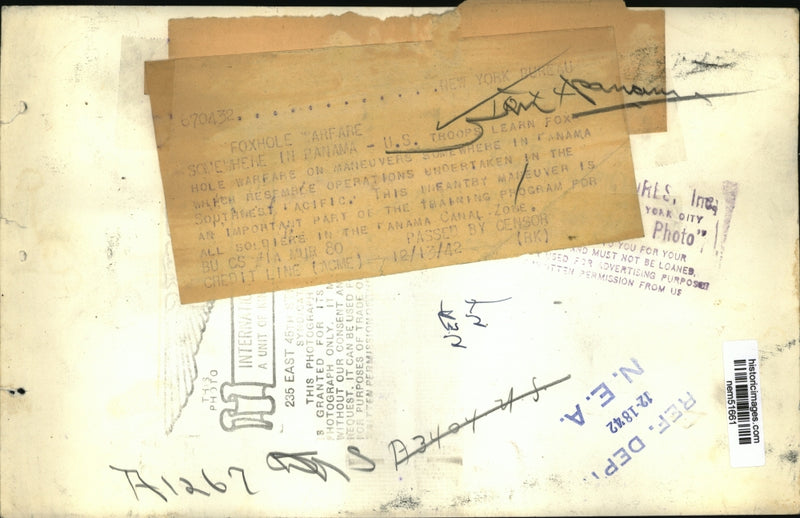 670432 . . . . . . . . . . . . NEW YORK BUREAU
FOXHOLE WARFARE
SOMEWHERE IN PANAMA - U.S. TROOPS LEARN FOX
HOLE WARFARE ON MANEUVERS SOMEWHERE IN PANAMA
WHICH RESEMBLE OPERATIONS UNDERTAKEN IN THE
SOUTHWEST PACIFIC. THIS INFANTRY MANEUVER IS
AN IMPORTANT PART OF THE TRAINING PROGRAM FOR
ALL SOLDIERS IN THE PANAMA CANAL ZONE.
BU CS 1A MUR 80 PASSED BY CENSOR
CREDIT LINE (ACME) - 12/13/42 (RK)
Panama
URES, Inc.
YORK CITY
Photo"
TO YOU FOR YOUR
AND MUST NOT BE LOANED,
USED FOR ADVERTISING PURPOSES
WRITTEN PERMISSION FROM US
THIS
PHOTO
INTERNATIO
A UNIT OF
235 EAST 45TH
THIS PHOTOGRAPH
IS GRANTED FOR ITS
PHOTOGRAPH ONLY. IT
WITHOUT OUR CONSENT
REQUEST. IT CAN BE USED
FOR PURPOSES OF TRADE O
WRITTEN PERMISSION
NEA
NY
REF. DEP.
12-18-42
N.E.A.
A3404
A1267
historicimages.com
nem51661